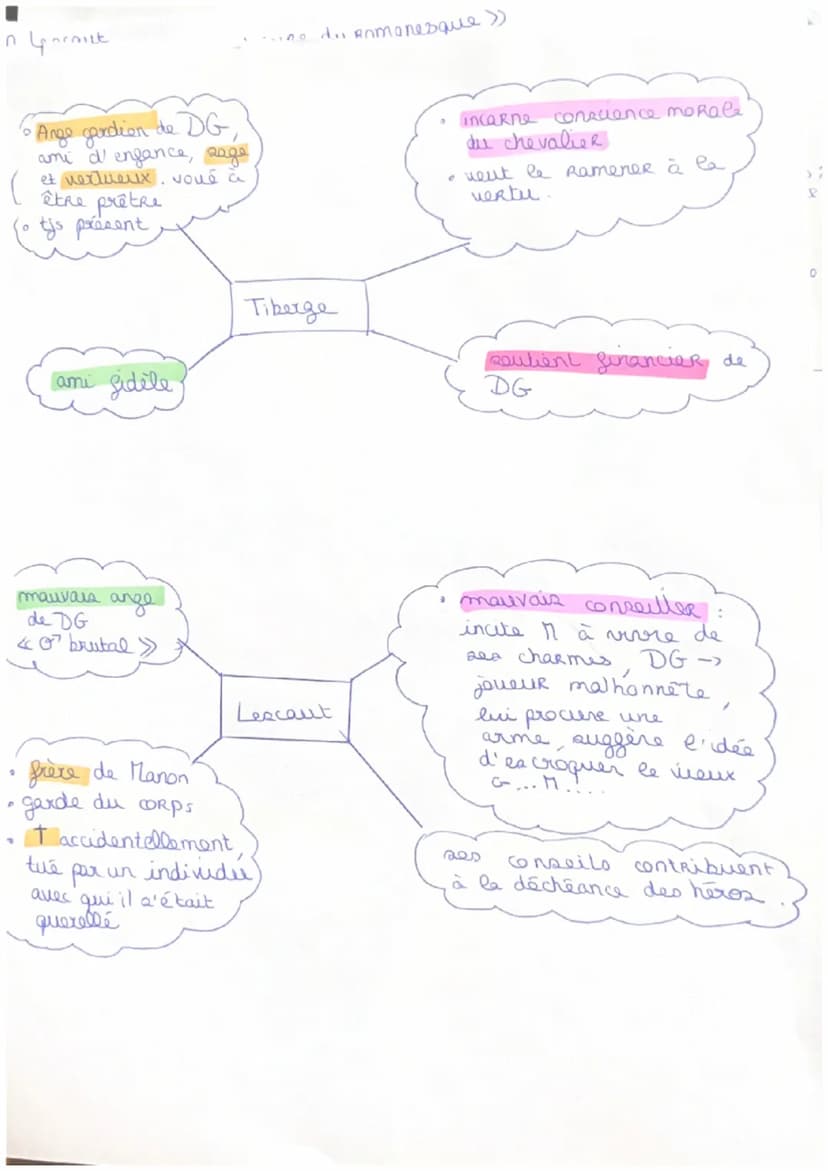 du Romanesque »
• Ange gardien de DG,
ami d'enfance, sage
et vertueux. voué à
être prêtre
• tjs présent
• incarne conscience morale
du chevalier
• veut le ramener à la
vertu.
Tiberge
ami fidèle
soutient financier de
DG
mauvais ange
de DG
« ♂ brutal »
• mauvais conseiller :
incite M à vivre de
ses charmes, DG ->
joueur malhonnête,
lui procure une
arme, suggère l'idée
d'escroquer le vieux
G...M....
Lescaut
• frère de Manon
• garde du corps
• † accidentellement
tué par un individu
avec qui il s'était
querellé
ses conseils contribuent
à la déchéance des héros.